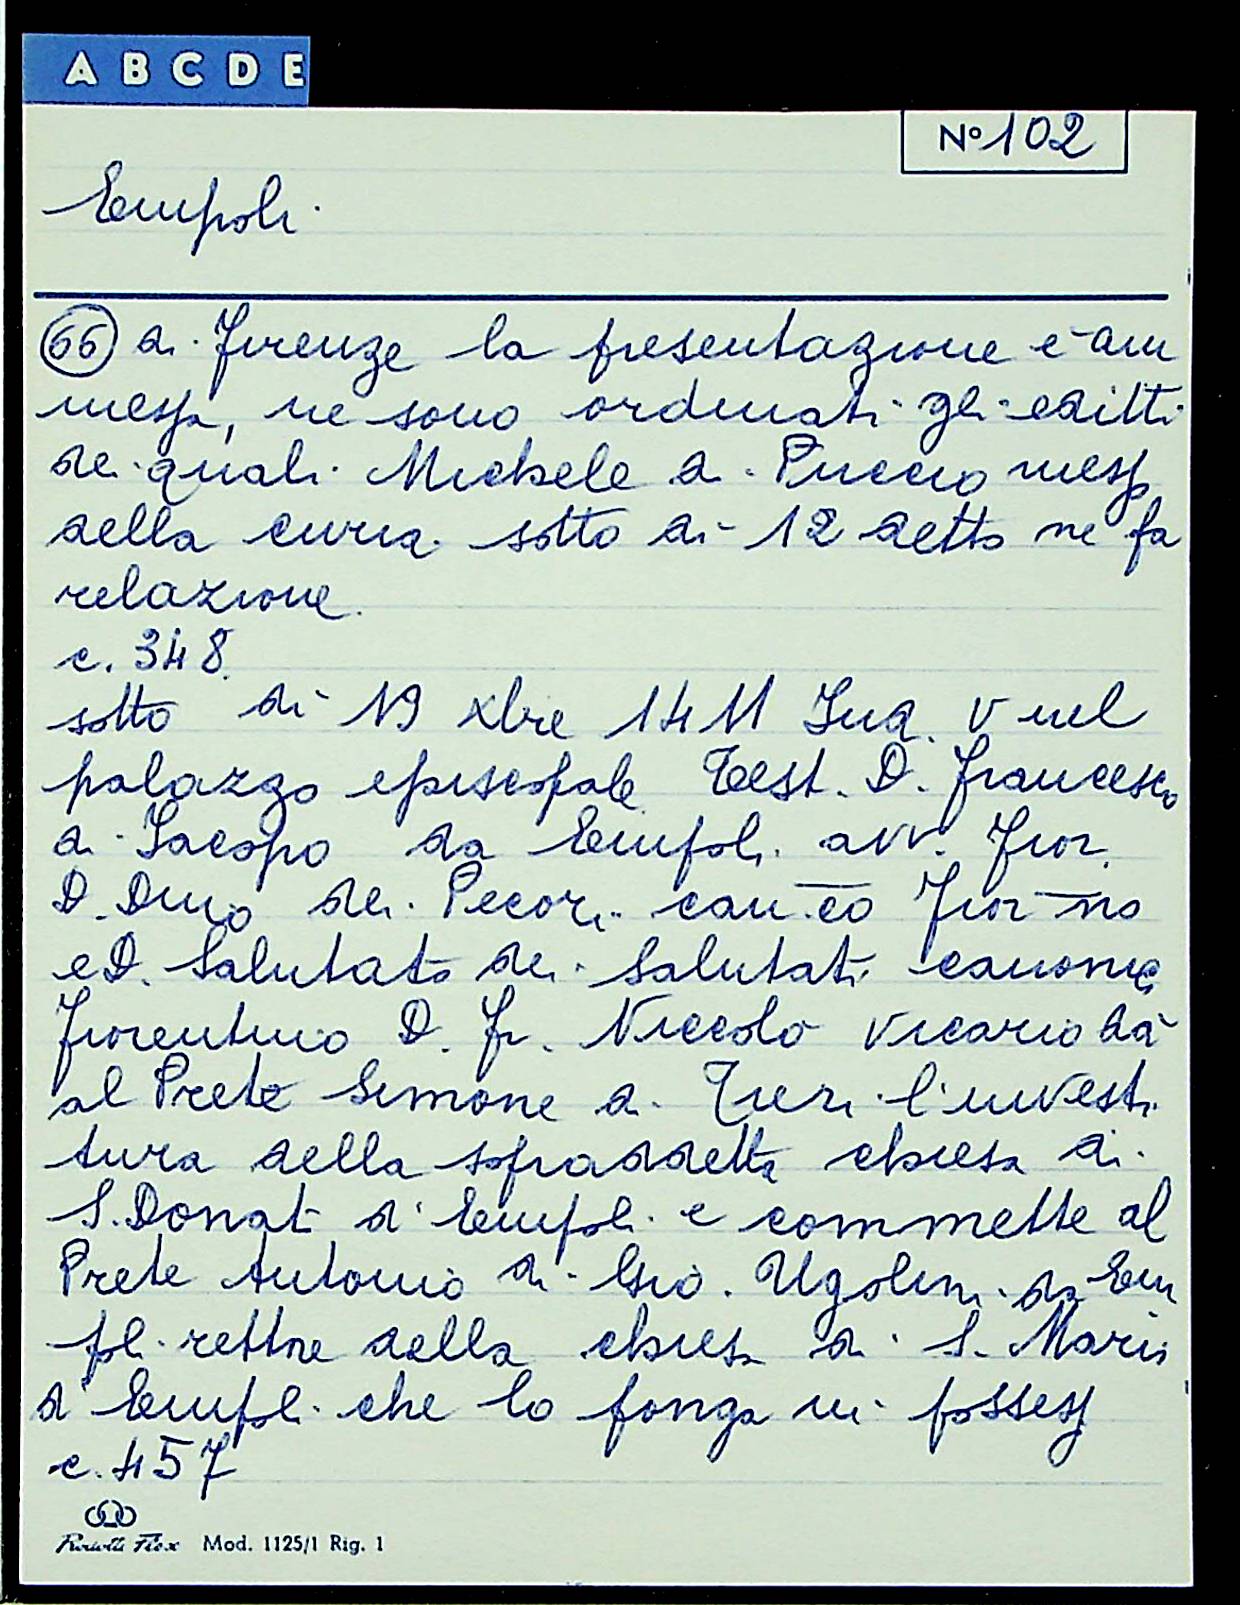 A B C D E
No 102
Empoli.
66 di Firenze la presentazione è am
messa, ne sono ordinati gli editti
dei quali Michele di Puccio messo
della curia sotto di 12 detto ne fa
relazione.
c. 348.
sotto dì 19 xbre 1411 Ind. V nel
palazzo episcopale Test. D. Francesco
di Jacopo da Empoli avv. Fior.
D. Dino dei Pecori can.co Fior-no
e D. Salutato dei Salutati canonico
Fiorentino D. Fr. Niccolò vicario dà
al Prete Simone di Tieri l'investi
tura della sopraddetta chiesa di
S. Donato d'Empoli e commette al
Prete Antonio di Gio. Ugolini da Em
poli rettore della chiesa di S. Maria
d'Empoli che lo ponga in possesso
c. 457
Mod. 1125/1 Rig. 1